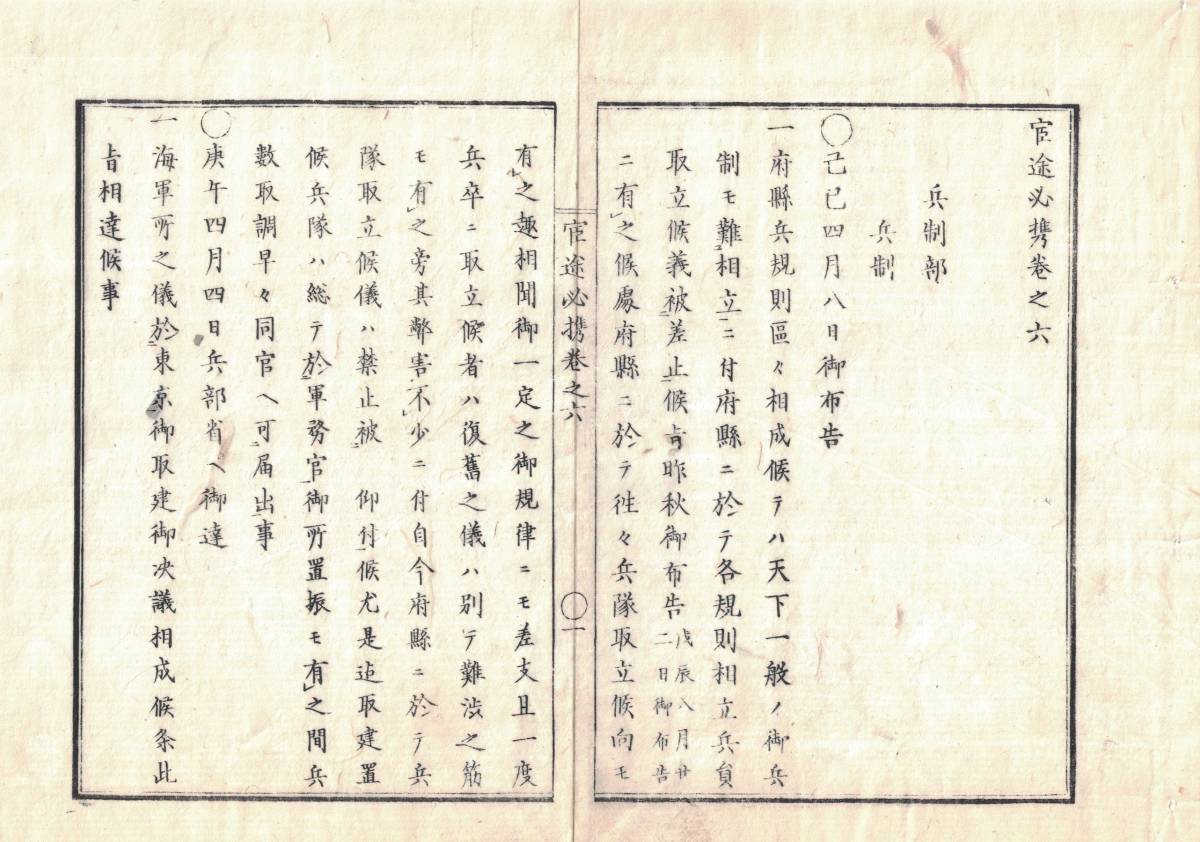 宦途必携巻之六
兵制部
兵制
〇己巳四月八日御布告
一府縣兵規則區々相成候テハ天下一般ノ御兵
制モ難ニ相立ニ付府縣ニ於テ各規則相立兵員
取立候義被差止候旨昨秋御布告戊辰八月廿
二日御布告
ニ有レ之候處府縣ニ於テ往々兵隊取立候向モ
宦途必携巻之六 〇一
有レ之趣相聞御一定之御規律ニモ差支且一度
兵卒ニ取立候者ハ復舊之儀ハ別テ難渋之筋
モ有レ之旁其弊害不レ少ニ付自今府縣ニ於テ兵
隊取立候儀ハ禁止被ニ 仰付一候尤是迠取建置
候兵隊ハ総テ於ニ軍務官一御所置振モ有レ之間兵
數取調早々同官ヘ可ニ届出一事
〇庚午四月四日兵部省ヘ御達
一海軍所之儀於ニ東京御取建御决議相成候条此
旨相達候事